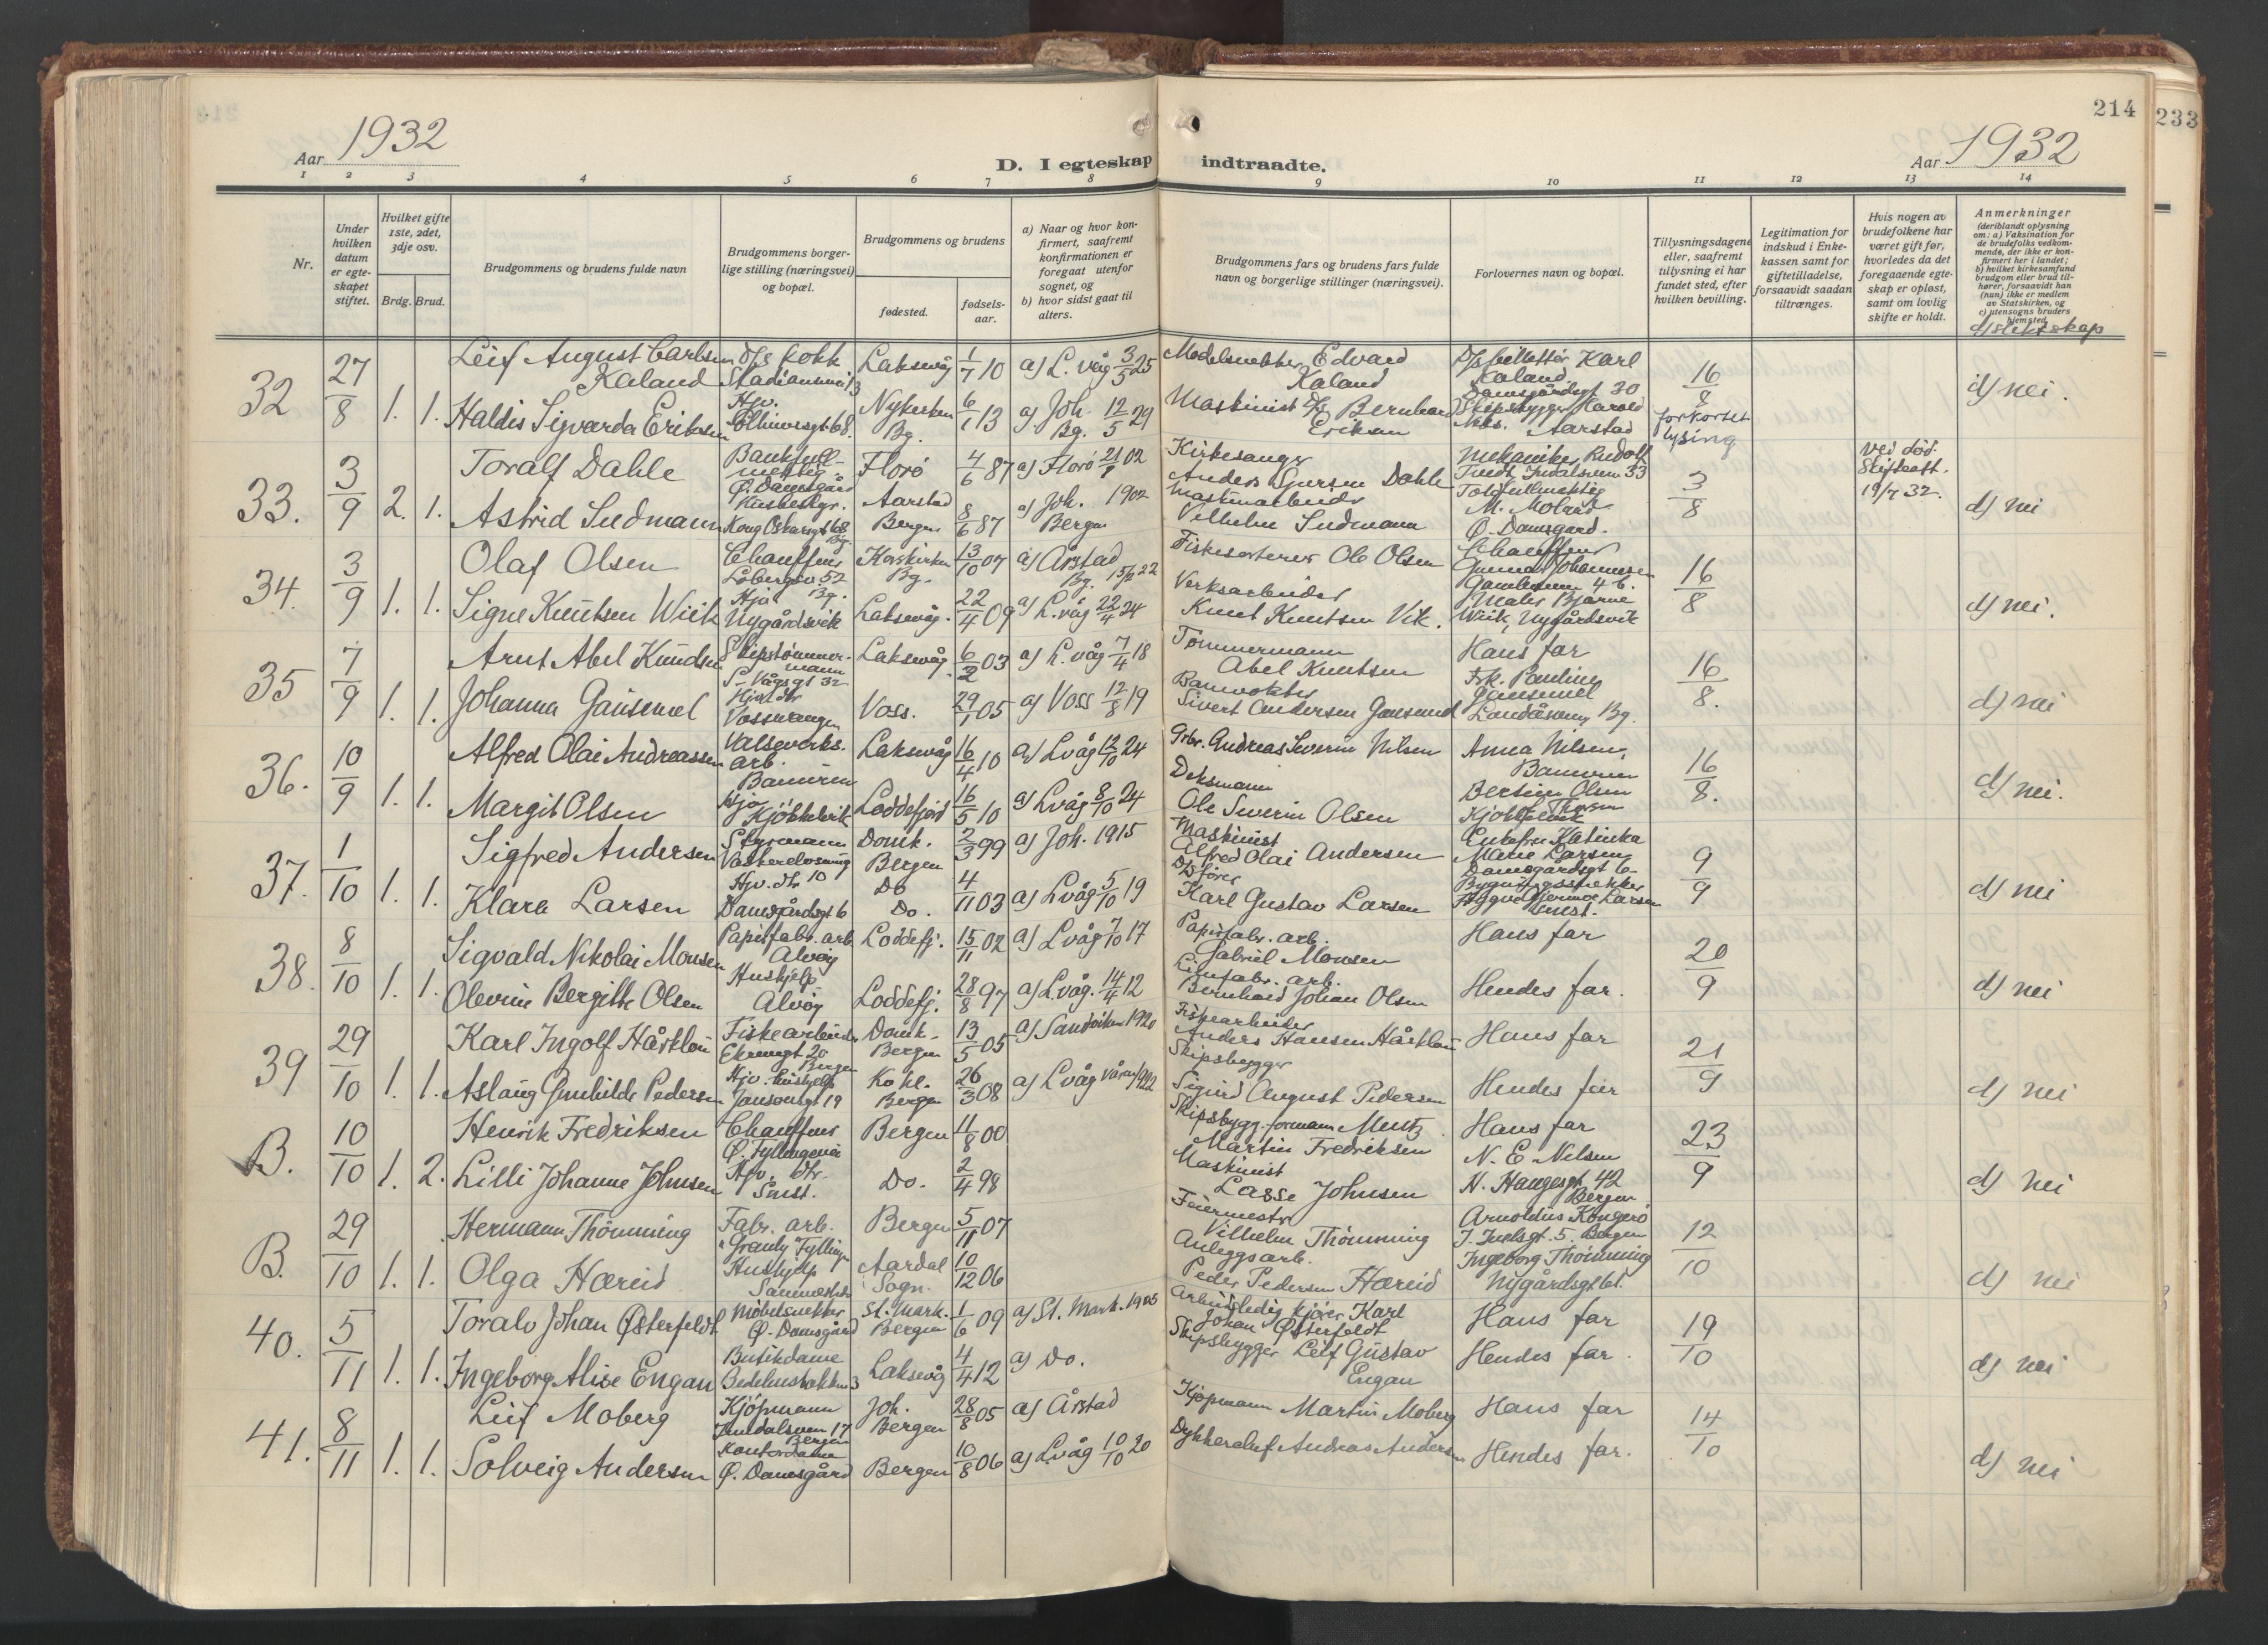 214
233
Aar 1932
D. I egteskap indtraadte.
Aar 1932
1 2 3 4 5 6 7 8 9 10 11 12 13 14
Nr.
Under hvilken datum er egteskapet stiftet.
Hvilket gifte 1ste, 2det, 3dje osv.
Brdg. Brud.
Brudgommens og brudens fulde navn
Brudgommens borgerlige stilling (næringsvei) og bopæl.
Brudgommens og brudens
fødested.
fødselsaar.
a) Naar og hvor konfirmert, saafremt konfirmationen er foregaat utenfor sognet, og
b) hvor sidst gaat til alters.
Brudgommens fars og brudens fars fulde navn og borgerlige stillinger (næringsvei).
Forlovernes navn og bopæl.
Tillysningsdagene eller, saafremt tillysning ei har fundet sted, efter hvilken bevilling.
Legitimation for indskud i Enkekassen samt for giftetilladelse, forsaavidt saadan tiltrænges.
Hvis nogen av brudefolkene har været gift før, hvorledes da det foregaaende egteskap er opløst, samt om lovlig skifte er holdt.
Anmerkninger (deriblandt oplysning om: a) Vaksination for de brudefolks vedkommende, der ikke er konfirmert her i landet; b) hvilket kirkesamfund brudgom eller brud tilhører, forsaavidt han (hun) ikke er medlem av Statskirken, og c) utensogns bruders hjemsted.
d) slektskap
32 27/8 1. 1.
Leif August Carlsen Kaland D/s kokk Laksevåg 1/7 10 a) L.våg 3/5 25 Modelsnekker Edvard Kaland Karl Kaland Damsgårdsgt 20 16/8 forkortet lysing d) nei.
Haldis Sigvarda Eriksen Hjv. Nykirken Bg. 6/1 13 a) Joh. Bg. 12/5 29 Maskinist Bernhard Eriksen Skipsbygger Harald Aarstad
33. 3/9 2. 1.
Toralf Dahle Bankfullmektig Ø. Damsgård Florø 4/6 87 a) Florø 21/9 02 Kirkesanger Anders Sjursen Dahle Mekaniker Rudolf 3/8 ved død. Skifteatt. 19/7 32. d) nei
Astrid Sudmann Kong Oscarsgt 68 Bg. Aarstad Bergen 8/6 87 a) Joh. Bergen 1902 Maskinarbeider Vilhelm Sudmann Tollfullmektig M. Moland Ø. Damsgard.
34. 3/9 1. 1.
Olaf Olsen Chauffør Løbergsv. 52 Bg. Korskirken Bg. 13/10 07 a) Årstad Bg. 22 Fiskesorterer Ole Olsen Chauffør Gunnar Johannessen 16/8 d) nei.
Signe Knutsen Wiik Hjv. Nygårdsvik Laksevåg. 22/4 09 a) L.våg 22/4 24 Verksarbeider Knut Knutsen Vik. Maler Bjarne Wiik, Nygårdsvik
35 7/9 1. 1.
Arnt Abel Knudsen Skipstømmermann Laksevåg. 6/2 03 a) L.våg 7/4 18 Tømmermann Abel Knutsen Hans far 16/8. d) nei
Johanna Gausemel Vossevangen Voss. 29/1 05 a) Voss 12/8 19 Banevokter Sivert Andersen Gausemel Frk. Pauline Gausemel Landåsveien, Bg.
36. 10/9 1. 1.
Alfred Olai Andreassen Valseverks. arb. Laksevåg 16/4 10 a) Lvåg 12/10 24 Grbr. Andreas Severin Nilsen Anna Nilsen, 16/8. d) nei.
Margit Olsen Kjøkkelvik Loddefjord 16/5 10 a) Lvåg 8/10 24 Deksmann Ole Severin Olsen Kjøkkelvik
37. 1/10 1. 1.
Sigfred Andersen Styrmann Domk. Bergen 2/3 99 a) Joh. 1915 Maskinist Alfred Olai Andersen Enkefru Katinka Marie Larsen Damsgårdsgt 6 9/9 d) nei
Klara Larsen Hjv. dtr Damsgårdsgt 6 Do Do. 4/11 03 a) Lvåg 5/10 19 Karl Gustav Larsen
38. 8/10 1. 1.
Sigvald Nikolai Monsen Papirfabr. arb. Alvøy Loddefj. 15/11 02 a) Lvåg 7/10 17 Papirfabr. arb. Gabriel Monsen Hans far 20/9 d) nei
Olevine Bergitte Olsen Hushjelp Alvøy Loddefj. 28/8 97 a) Lvåg. 14/4 12 Limfabr. arb. Bernhard Johan Olsen Hendes far.
39 29/10 1. 1.
Karl Ingolf Hårklau Fiskearbeider Ekrengt 20 Bergen Domk. Bergen 13/5 05 a) Sandviken 1920 Fiskearbeider Anders Hansen Hårklau Hans far 21/9 d) nei
Aslaug Gunhilde Pedersen Hjv. hushjelp Jansonsgt 19 Bergen 26/3 08 a) Lvåg Våren 1922 Skipsbygger Sigurd August Pedersen Hendes far
B. 10/10 1. 2.
Henrik Fredriksen Chauffør Bergen 11/8 00 Skipsbygg. formann Mentz Martin Fredriksen Hans far 23/9 d) nei
Lilli Johanne Johnsen Hjv. dtr. Smst. Do. 2/4 98 Maskinist Lasse Johnsen N. E. Nilsen H. Haugesgt. 42 Bergen
B. 29/10 1. 1.
Hermann Thömming Fabr. arb. Bergen 5/11 07 Feiermestr Vilhelm Thömming Arnoldus Kongerö J. Juelsgt. 5. Bergen 12/10 d) nei
Olga Hæreid Hushjelp Sammesteds Aardal i Sogn. 10/12 06 Anleggsarb. Peder Pedersen Hæreid Ingeborg Thömming Nygårdsgt 61.
40. 5/11 1. 1.
Toralv Johan Østerfeldt Møbelsnekker Ø. Damsgård St. Mark. Bergen 1/6 09 a) St. Mark. Arbeidsledig kjører Karl Johan Østerfeldt Hans far 19/10 d) nei
Ingeborg Alise Engan Butikdame Laksevåg 4/4 12 a) Do. Skipsbygger Leif Gustav Engan Hendes far.
41. 8/11 1. 1.
Leif Moberg Kjøpmann Bergen Joh. Bergen 28/8 05 a) Årstad Kjøpmann Martin Moberg Hans far 14/10 d) nei
Solveig Andersen Kontordame Ø. Damsgård Bergen 10/8 06 a) Lvåg 10/10 20 Andreas Andersen Hendes far.